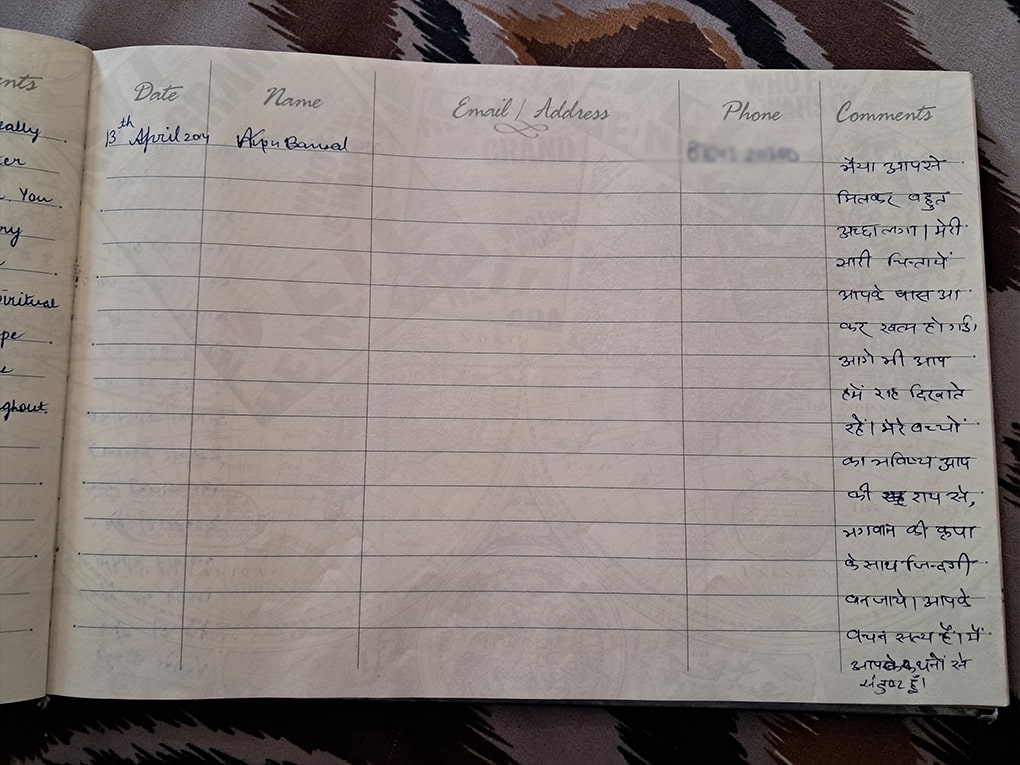 nts
eally
er
You
ry
iritual
pe
e
ghout.
Date Name Email / Address Phone Comments
13th April 2014 Bansal
भैया आपसे
मिलकर बहुत
अच्छा लगा। मेरी
सारी चिन्तायें
आपके पास आ
कर खत्म हो गई।
आगे भी आप
हमें राह दिखाते
रहें। मेरे बच्चों
का भविष्य आप
की राय से,
भगवान की कृपा
के साथ जिन्दगी
बन जाये। आपके
वचन सत्य हैं। मैं
आपके कथनों से
संतुष्ट हूँ।